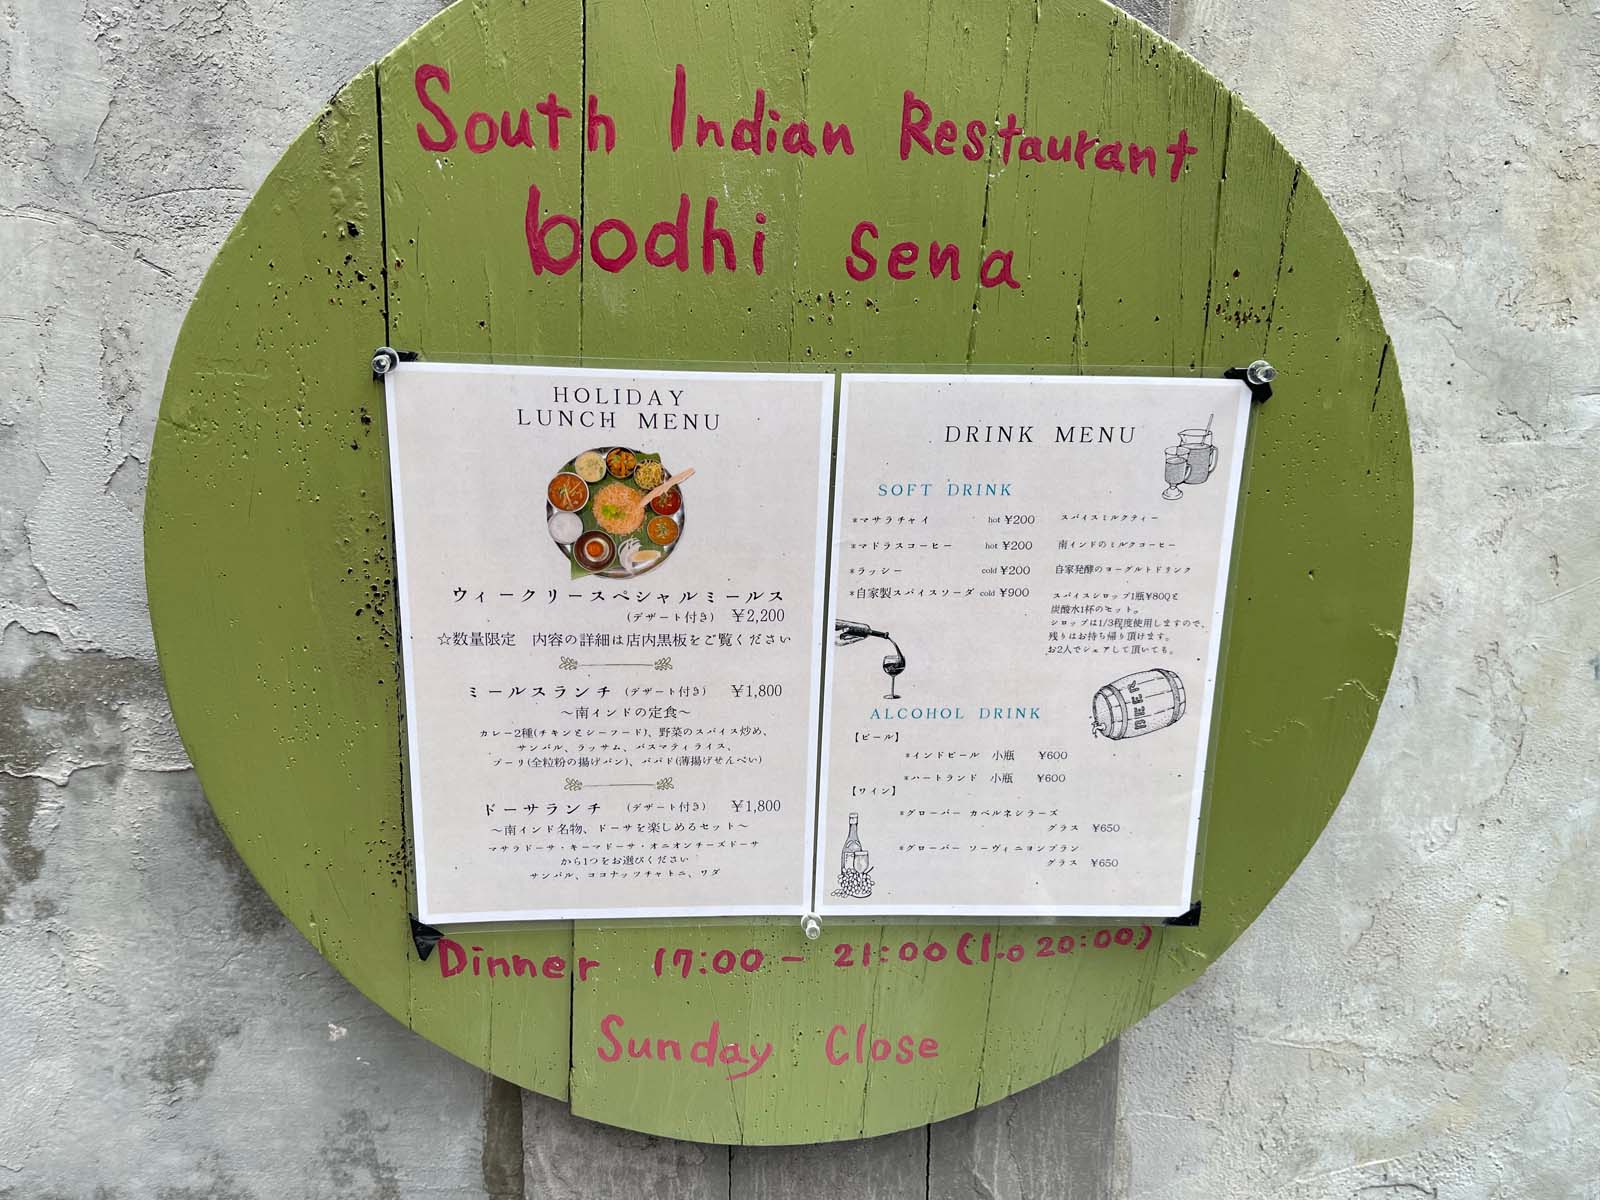 South Indian Restaurant
bodhi sena
HOLIDAY
LUNCH MENU
ウィークリースペシャルミールス
(デザート付き) ¥2,200
☆数量限定 内容の詳細は店内黒板をご覧ください
ミールスランチ (デザート付き) ¥1,800
～南インドの定食～
カレー2種(チキンとシーフード)、野菜のスパイス炒め、
サンバル、ラッサム、バスマティライス、
プーリ(全粒粉の揚げパン)、パパド(薄揚げせんべい)
ドーサランチ (デザート付き) ¥1,800
～南インド名物、ドーサを楽しめるセット～
マサラドーサ・キーマドーサ・オニオンチーズドーサ
から1つをお選びください
サンバル、ココナッツチャトニ、ワダ
DRINK MENU
SOFT DRINK
*マサラチャイ hot ¥200 スパイスミルクティー
*マドラスコーヒー hot ¥200 南インドのミルクコーヒー
*ラッシー cold ¥200 自家発酵のヨーグルトドリンク
*自家製スパイスソーダ cold ¥900 スパイスシロップ1瓶¥800と
炭酸水1杯のセット。
シロップは1/3程度使用しますので、
残りはお持ち帰り頂けます。
お2人でシェアして頂いても。
BEER
ALCOHOL DRINK
【ビール】
*インドビール 小瓶 ¥600
*ハートランド 小瓶 ¥600
【ワイン】
*グローバー カベルネシラーズ
グラス ¥650
*グローバー ソーヴィニヨンブラン
グラス ¥650
Dinner 17:00 - 21:00 (l.o 20:00)
Sunday Close